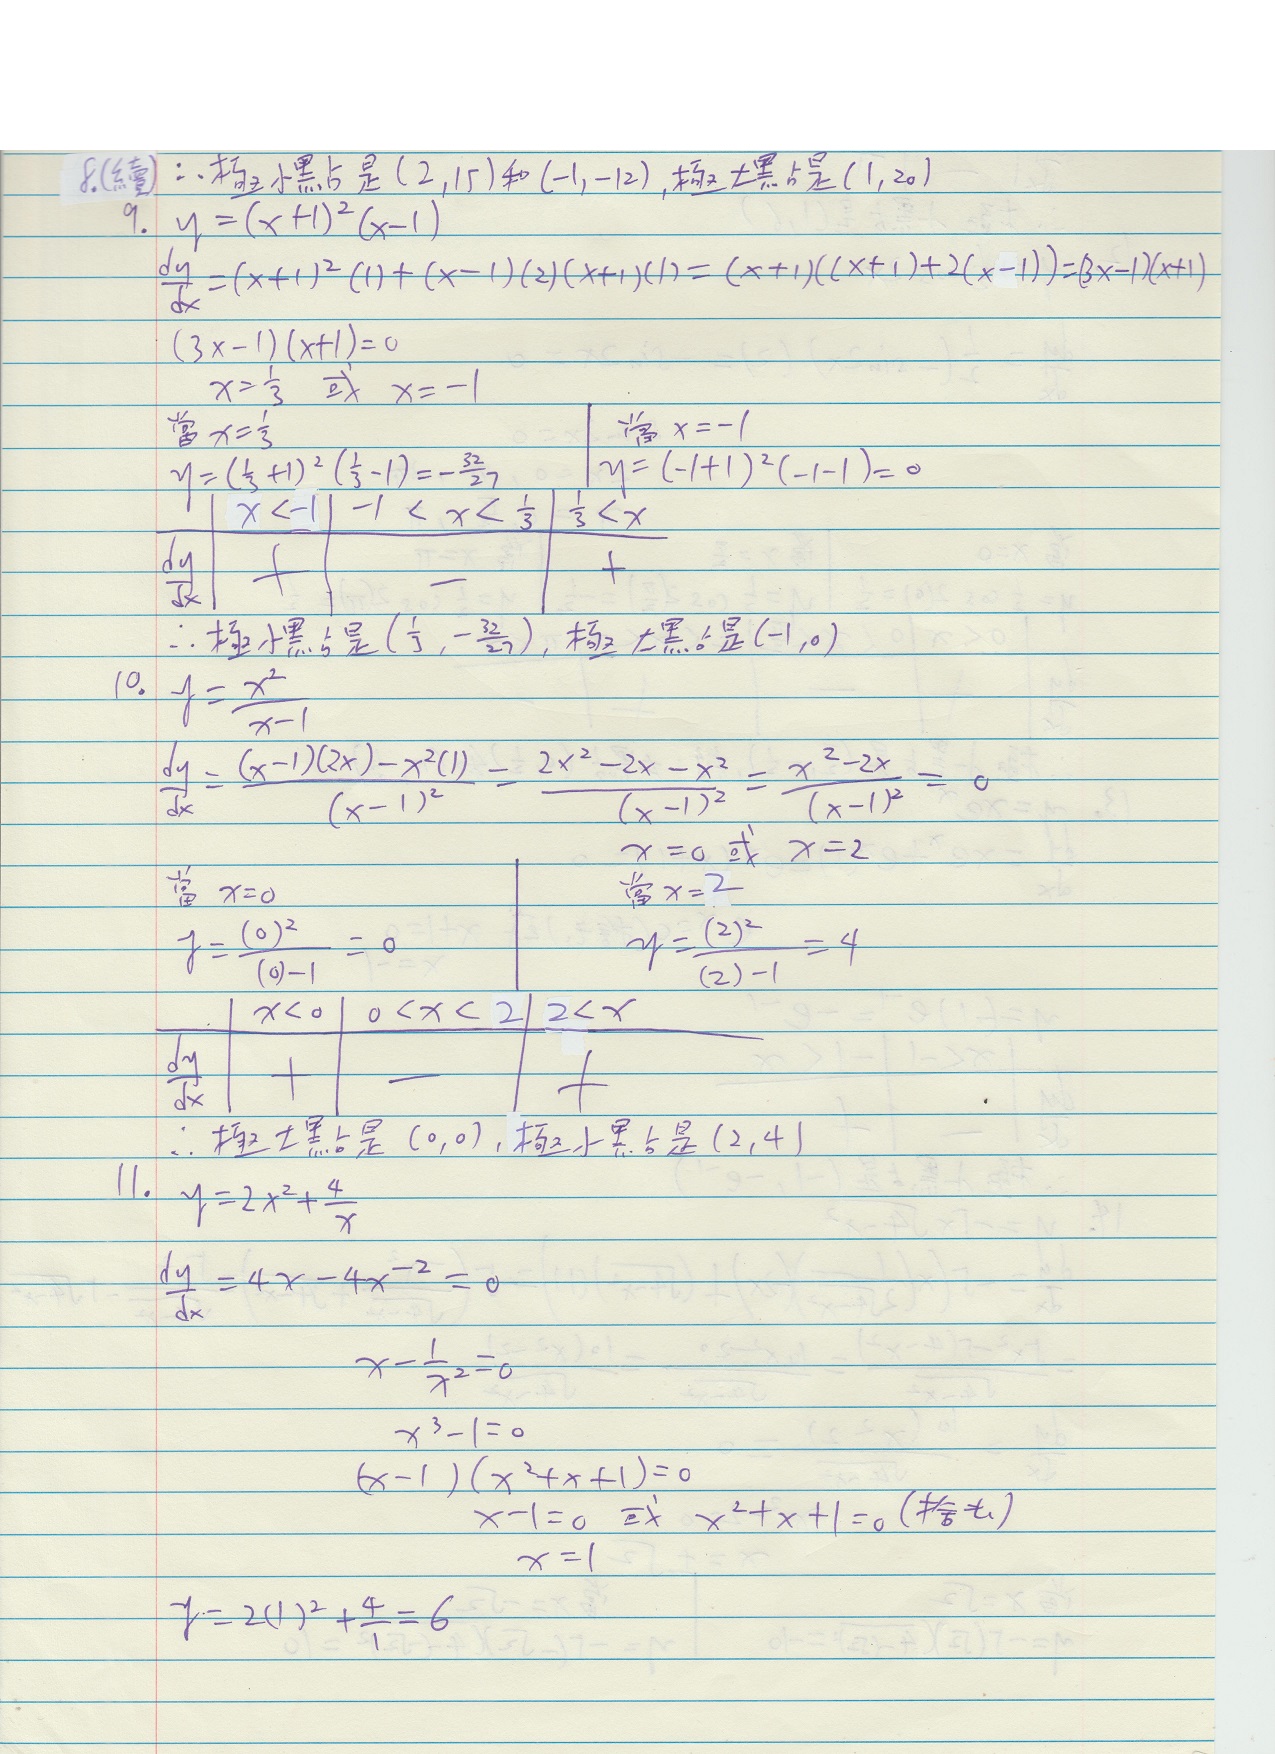 8.(續) ∴極小點是(2,15)和(-1,-12),極大點是(1,20)
9. y=(x+1)²(x-1)
dy/dx=(x+1)²(1)+(x-1)(2)(x+1)(1)=(x+1)((x+1)+2(x-1))=(3x-1)(x+1)
(3x-1)(x+1)=0
x=1/3 或 x=-1
當x=1/3 當x=-1
y=(1/3+1)²(1/3-1)=-32/27 y=(-1+1)²(-1-1)=0
x<-1 -1<x<1/3 1/3<x
dy/dx + - +
∴極小點是(1/3,-32/27),極大點是(-1,0)
10. y=x²/(x-1)
dy/dx=((x-1)(2x)-x²(1))/(x-1)²=(2x²-2x-x²)/(x-1)²=(x²-2x)/(x-1)²=0
x=0 或 x=2
當x=0 當x=2
y=(0)²/((0)-1)=0 y=(2)²/((2)-1)=4
x<0 0<x<2 2<x
dy/dx + - +
∴極大點是(0,0),極小點是(2,4)
11. y=2x²+4/x
dy/dx=4x-4x⁻²=0
x-1/x²=0
x³-1=0
(x-1)(x²+x+1)=0
x-1=0 或 x²+x+1=0(捨去)
x=1
y=2(1)²+4/1=6